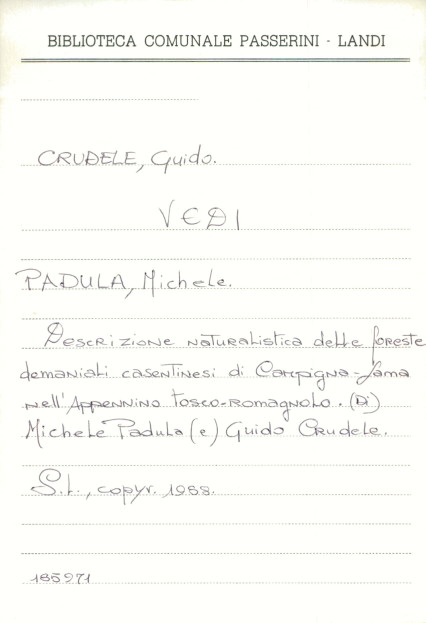 BIBLIOTECA COMUNALE PASSERINI - LANDI
CRUDELE, Guido.
VEDI
PADULA, Michele.
Descrizione naturalistica delle foreste
demaniali casentinesi di Campigna-Lama
nell'Appennino tosco-romagnolo. (Di)
Michele Padula (e) Guido Crudele.
S.l., copyr. 1988.
185971